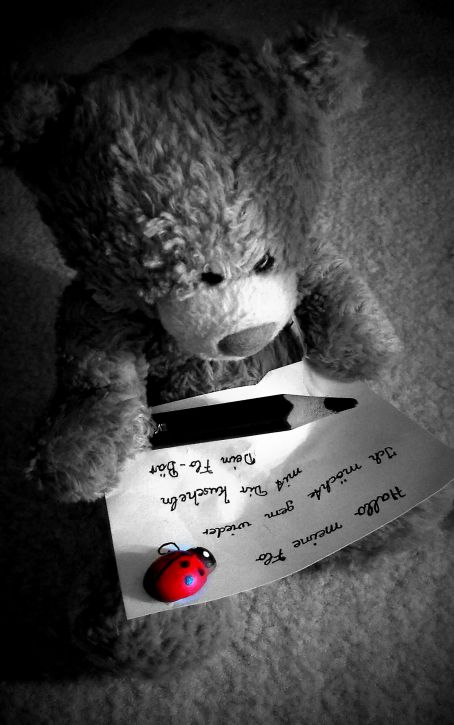 Hallo meine Flo
Ich möchte gern wieder
mit Dir kuscheln
Dein Flo-Bär